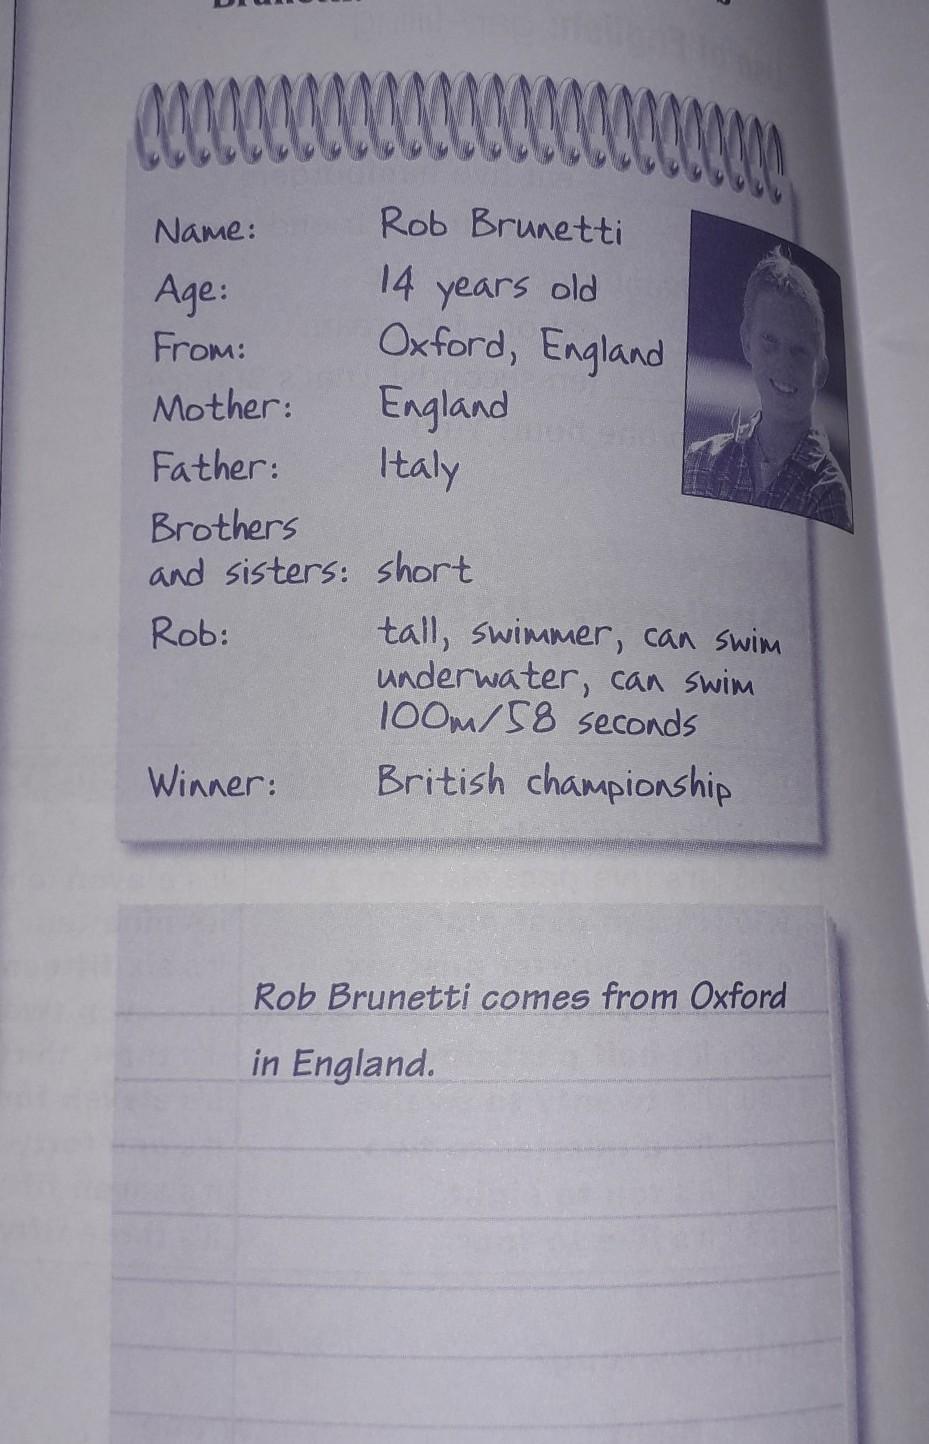 Name: Rob Brunetti
Age: 14 years old
From: Oxford, England
Mother: England
Father: Italy
Brothers
and sisters: short
Rob: tall, swimmer, can swim
underwater, can swim
100m/58 seconds
Winner: British championship
Rob Brunetti comes from Oxford
in England.